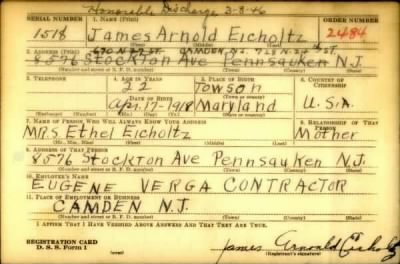 Honorable Discharge 2-8-46
SERIAL NUMBER 1. NAME (Print) ORDER NUMBER
1518 James Arnold Eicholtz 2484
(First) (Middle) (Last)
2. ADDRESS (Print) CAMDEN N.J.
8576 Stockton Ave Pennsauken N.J.
(Number and street or R. F. D. number) (Town) (County) (State)
3. TELEPHONE 4. AGE IN YEARS 5. PLACE OF BIRTH 6. COUNTRY OF CITIZENSHIP
22 Towson
DATE OF BIRTH (Town or county)
Apr. 17-1918 Maryland U.S.A.
(Exchange) (No.) (Mo.) (Day) (Yr.) (State or country)
7. NAME OF PERSON WHO WILL ALWAYS KNOW YOUR ADDRESS 8. RELATIONSHIP OF THAT PERSON
MRS. Ethel Eicholtz Mother
(Mr., Mrs., Miss) (First) (Middle) (Last)
9. ADDRESS OF THAT PERSON
8576 Stockton Ave Pennsauken N.J.
(Number and street or R. F. D. number) (Town) (County) (State)
10. EMPLOYER'S NAME
EUGENE VERGA CONTRACTOR
11. PLACE OF EMPLOYMENT OR BUSINESS
CAMDEN N.J.
(Number and street or R. F. D. number) (Town) (County) (State)
I AFFIRM THAT I HAVE VERIFIED ABOVE ANSWERS AND THAT THEY ARE TRUE.
REGISTRATION CARD
D. S. S. Form 1 James Arnold Eicholtz
(Registrant's signature)